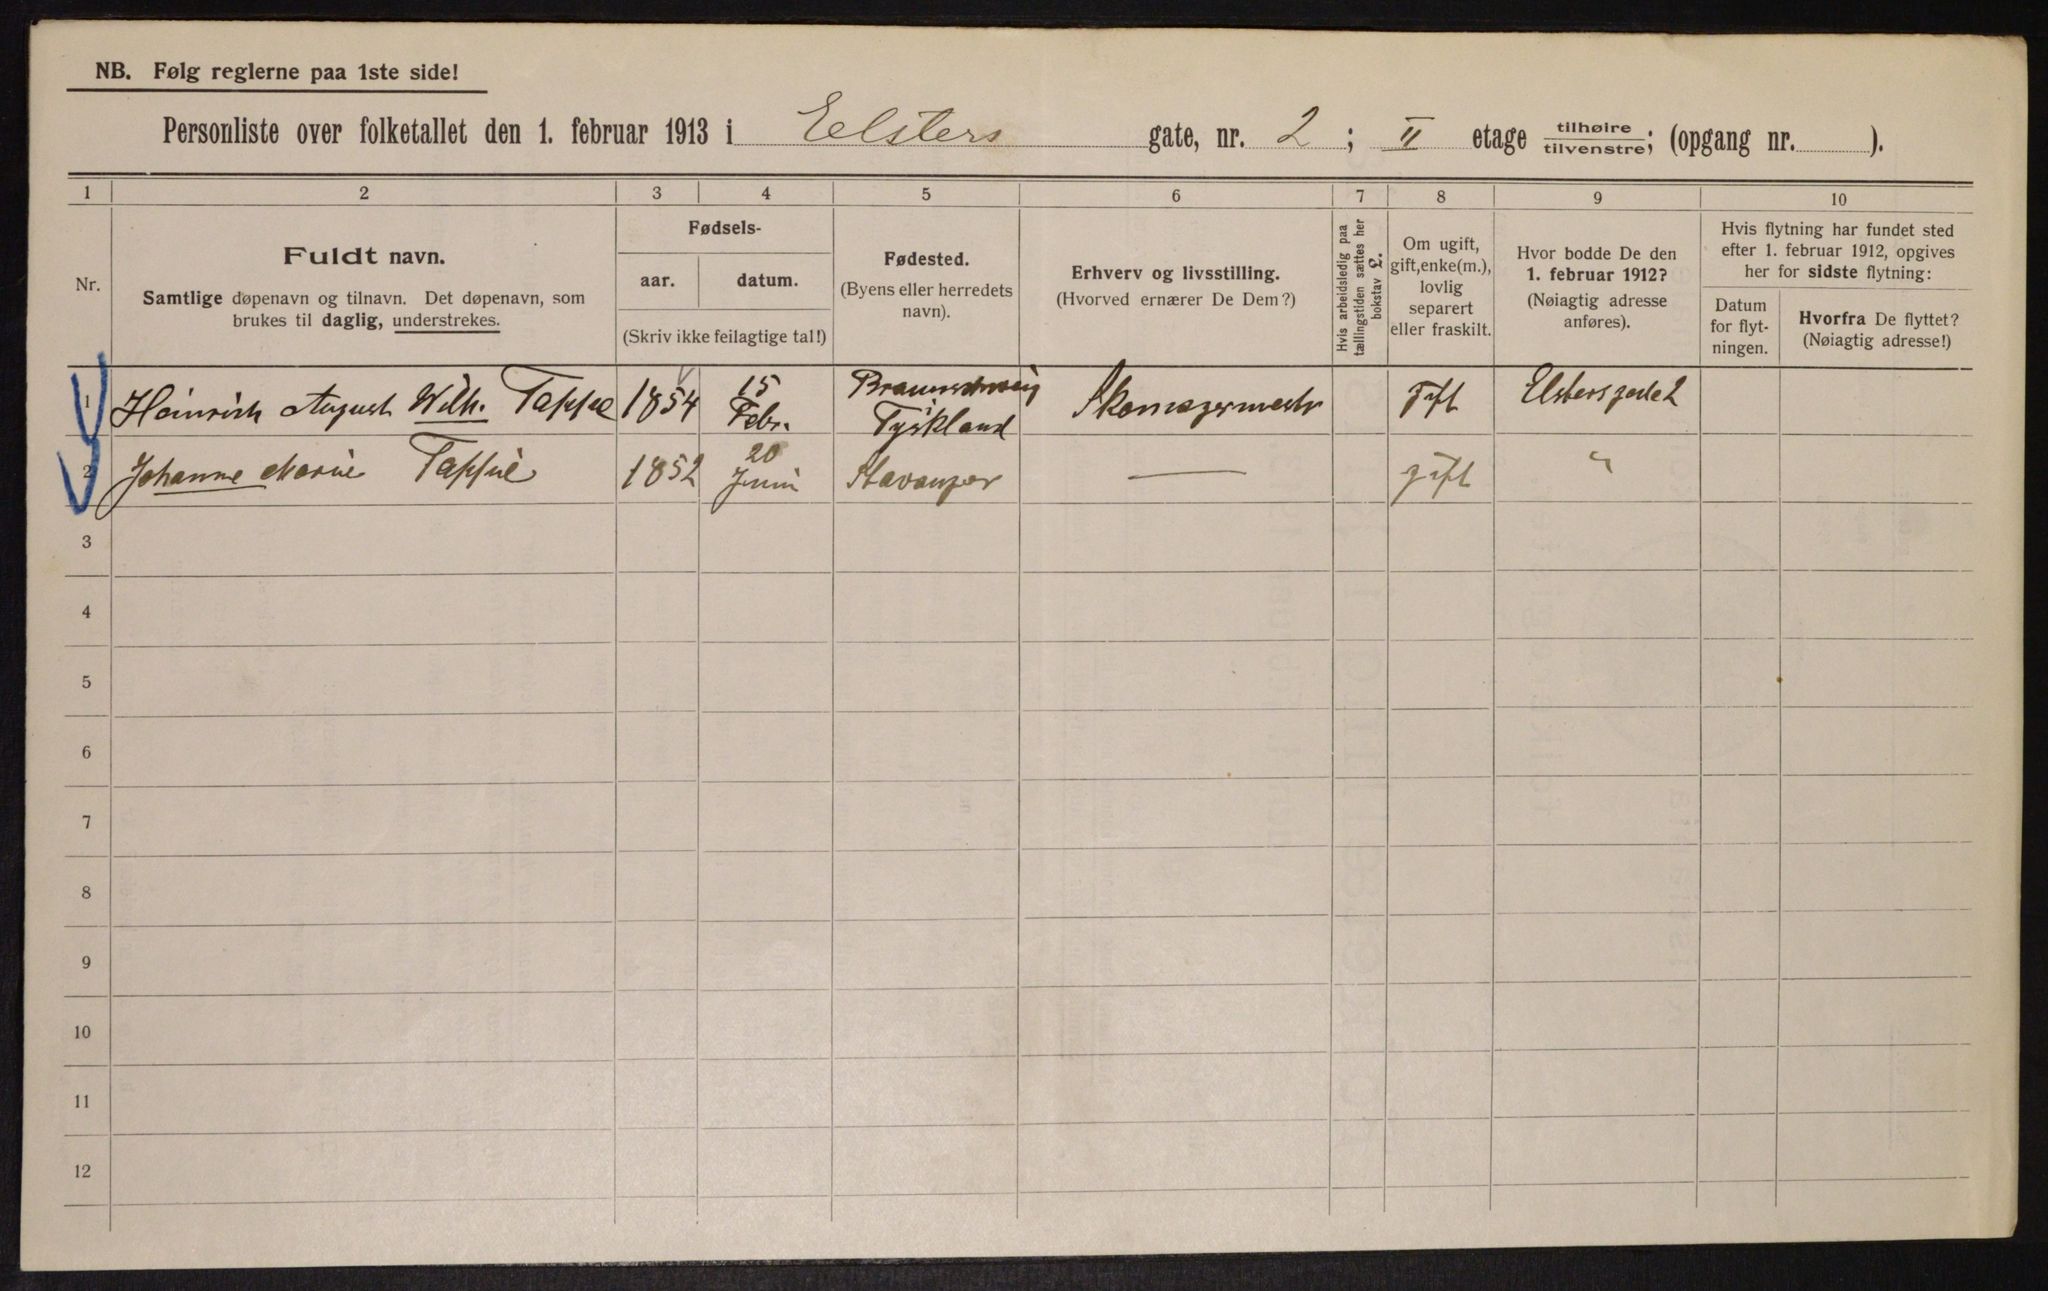 NB. Følg reglerne paa 1ste side!
Personliste over folketallet den 1. februar 1913 i Eelsters gate, nr. 2; II etage tilhøire tilvenstre; (opgang nr. ).
1 2 3 4 5 6 7 8 9 10
Nr.
Fuldt navn.
Samtlige døpenavn og tilnavn. Det døpenavn, som
brukes til daglig, understrekes.
Fødsels-
aar. datum.
(Skriv ikke feilagtige tal!)
Fødested.
(Byens eller herredets
navn).
Erhverv og livsstilling.
(Hvorved ernærer De Dem?)
Hvis arbeidsledig paa
tællingstiden sættes her
bokstav L.
Om ugift,
gift, enke(m.),
lovlig
separert
eller fraskilt.
Hvor bodde De den
1. februar 1912?
(Nøiagtig adresse
anføres).
Hvis flytning har fundet sted
efter 1. februar 1912, opgives
her for sidste flytning:
Datum
for flyt-
ningen.
Hvorfra De flyttet?
(Nøiagtig adresse!)
1 Heinrich August Wilh. Tappe 1854 15 Febr. Braunschweig i Tyskland Skomagermestr gift Elstersgade 2
2 Johanne Marie Tappe 1852 20 Juni Stavanger — gift "
3
4
5
6
7
8
9
10
11
12